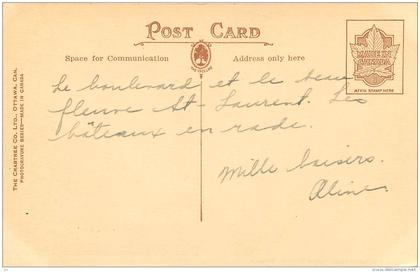 POST CARD
Space for Communication
Address only here
MADE IN
CANADA
AFFIX STAMP HERE
THE CRABTREE CO. LTD., OTTAWA, CAN.
PHOTOGRAVURE SERIES—MADE IN CANADA
Le boulevard et le beau
fleuve St-Laurent. Les
bâteaux en rade.
Mille baisers.
Aline